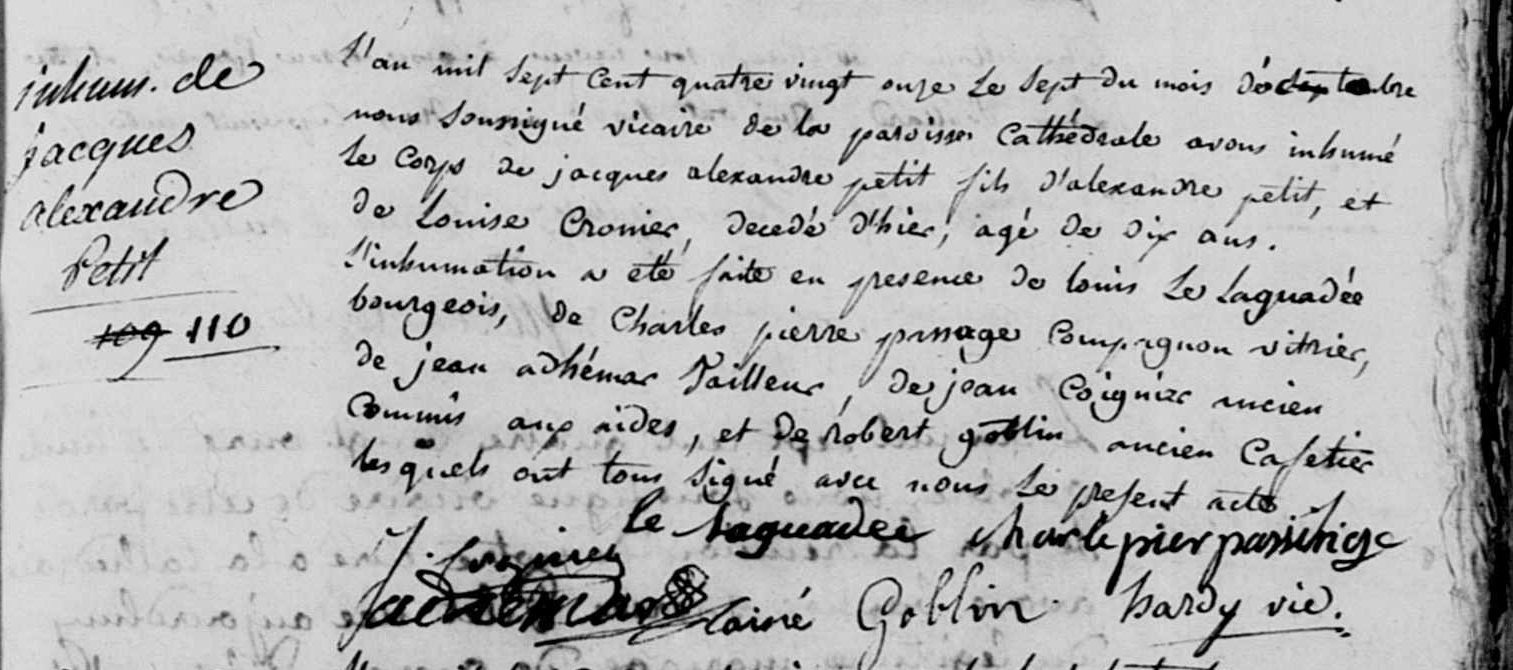 inhum. de
jacques
alexandre
Petit
109 110
L'an mil sept cent quatre vingt onze le sept du mois de septembre
nous soussigné vicaire de la paroisse Cathédrale avons inhumé
le corps de jacques alexandre petit fils d'alexandre petit, et
de Louise Cronier, decedé d'hier, agé de dix ans.
L'inhumation a eté faite en presence de louis Le Laguadée
bourgeois, de Charles pierre passage Compagnon vitrier,
de jean adhémar Tailleur, de jean Coignier ancien
Commis aux aides, et de robert goblin ancien Cafetier
lesquels ont tous signé avec nous le present acte
le laguadée charle pier
J. Coignier
adhemar lainé Goblin hardy vic.